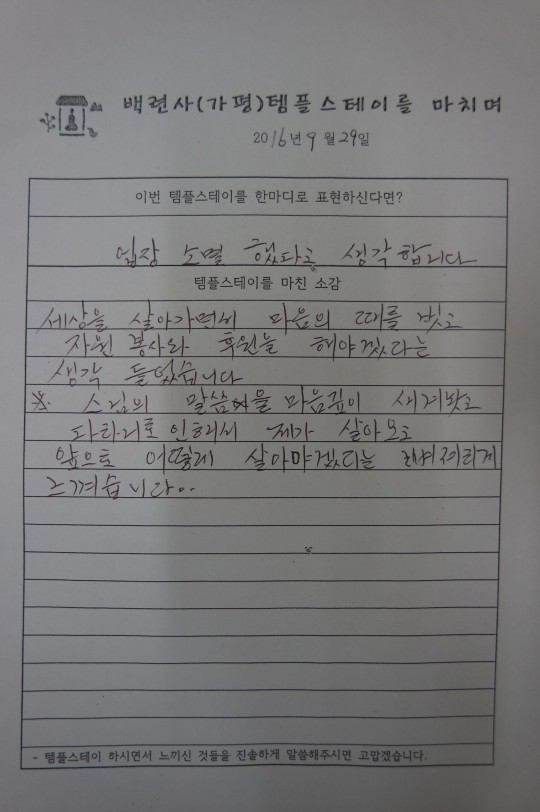 백련사(가평)템플스테이를 마치며
2016년 9월 29일
이번 템플스테이를 한마디로 표현하신다면?
업장 소멸 했다고 생각합니다
템플스테이를 마친 소감
세상을 살아가면서 마음의 때를 벗고
자원 봉사와 후원을 해야겠다는
생각 들었습니다
※ 스님의 말씀을 마음깊이 새겨보고
인해서 제가 살아보고
앞으로 어떻게 살아야겠다는
느껴습니다..
- 템플스테이 하시면서 느끼신 것들을 진솔하게 말씀해주시면 고맙겠습니다.